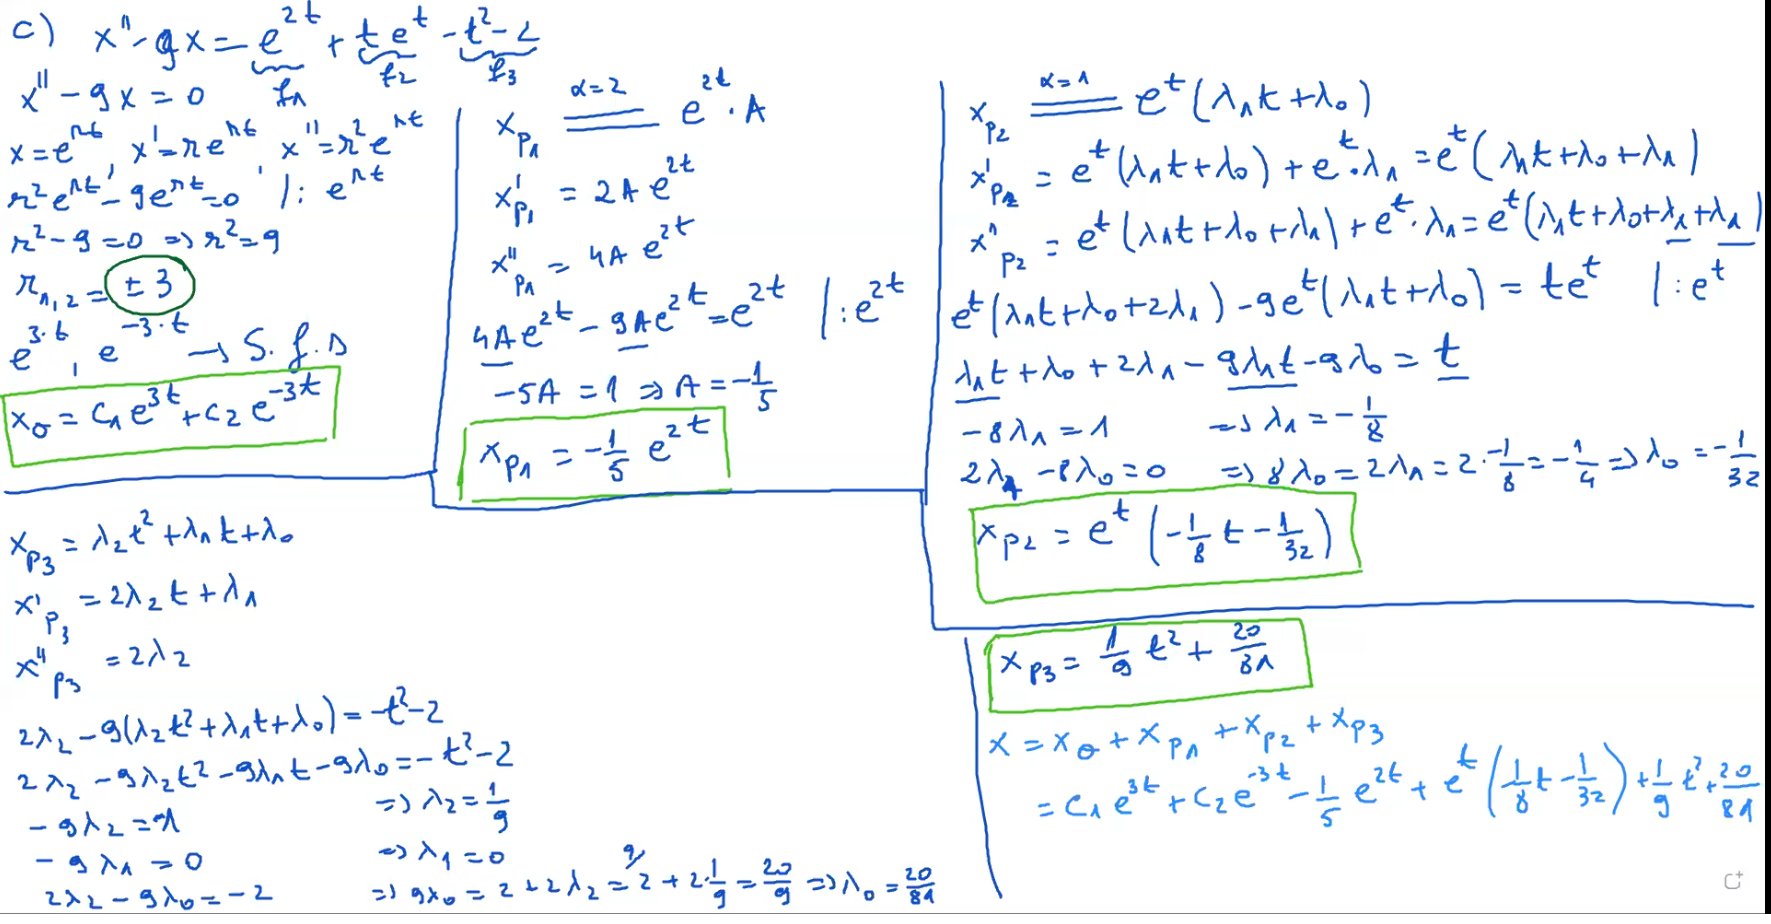 c) x'' - 9x = e^{2t} + te^t - t² - 2
f₁ f₂ f₃
x'' - 9x = 0
x = e^{rt}, x' = re^{rt}, x'' = r²e^{rt}
r²e^{rt} - 9e^{rt} = 0 /: e^{rt}
r² - 9 = 0 => r² = 9
r₁,₂ = ± 3
e^{3·t}, e^{-3·t} → S.f.s
x₀ = C₁e^{3t} + C₂e^{-3t}
x_{p1} = e^{2t}·A
α=2
x'_{p1} = 2Ae^{2t}
x''_{p1} = 4Ae^{2t}
4Ae^{2t} - 9Ae^{2t} = e^{2t} /: e^{2t}
-5A = 1 => A = -1/5
x_{p1} = -1/5 e^{2t}
x_{p2} = e^t(λ₁t + λ₀)
α=1
x'_{p2} = e^t(λ₁t + λ₀) + e^t·λ₁ = e^t(λ₁t + λ₀ + λ₁)
x''_{p2} = e^t(λ₁t + λ₀ + λ₁) + e^t·λ₁ = e^t(λ₁t + λ₀ + λ₁ + λ₁)
e^t(λ₁t + λ₀ + 2λ₁) - 9e^t(λ₁t + λ₀) = te^t /: e^t
λ₁t + λ₀ + 2λ₁ - 9λ₁t - 9λ₀ = t
-8λ₁ = 1 => λ₁ = -1/8
2λ₁ - 8λ₀ = 0 => 8λ₀ = 2λ₁ = 2·-1/8 = -1/4 => λ₀ = -1/32
x_{p2} = e^t(-1/8 t - 1/32)
x_{p3} = λ₂t² + λ₁t + λ₀
x'_{p3} = 2λ₂t + λ₁
x''_{p3} = 2λ₂
2λ₂ - 9(λ₂t² + λ₁t + λ₀) = -t² - 2
2λ₂ - 9λ₂t² - 9λ₁t - 9λ₀ = -t² - 2
-9λ₂ = -1 => λ₂ = 1/9
-9λ₁ = 0 => λ₁ = 0
2λ₂ - 9λ₀ = -2 => 9λ₀ = 2 + 2λ₂ = 2 + 2·1/9 = 20/9 => λ₀ = 20/81
x_{p3} = 1/9 t² + 20/81
x = x₀ + x_{p1} + x_{p2} + x_{p3}
= C₁e^{3t} + C₂e^{-3t} - 1/5 e^{2t} + e^t(1/8 t - 1/32) + 1/9 t² + 20/81